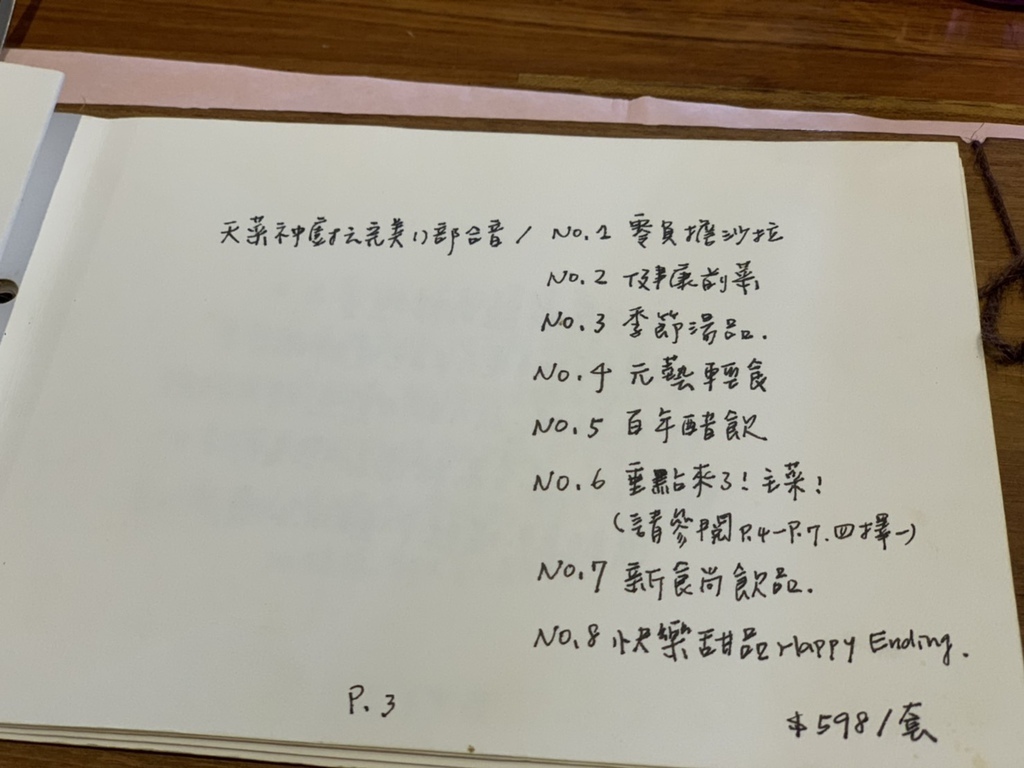 天菜神廚ㄉ完美八部合音 / No.1 零負擔沙拉
No.2 健康前菜
No.3 季節湯品.
No.4 元藝輕食
No.5 百年醋飲
No.6 重點來了! 主菜!
(請參閱 P.4-P.7. 四擇一)
No.7 新食尚飲品.
No.8 快樂甜品 Happy Ending.
P.3
$598/套